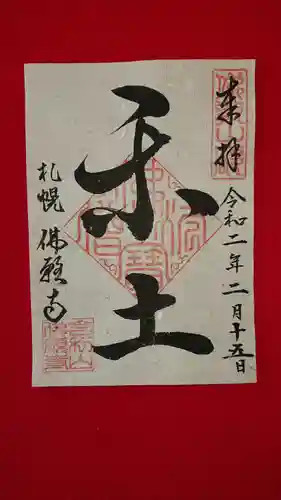 奉拝
令和二年二月十五日
楽土
札幌 佛願寺